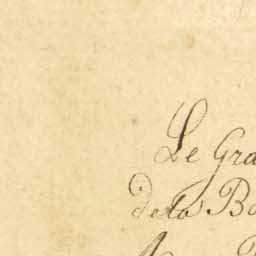 Le Gra
de la Bo